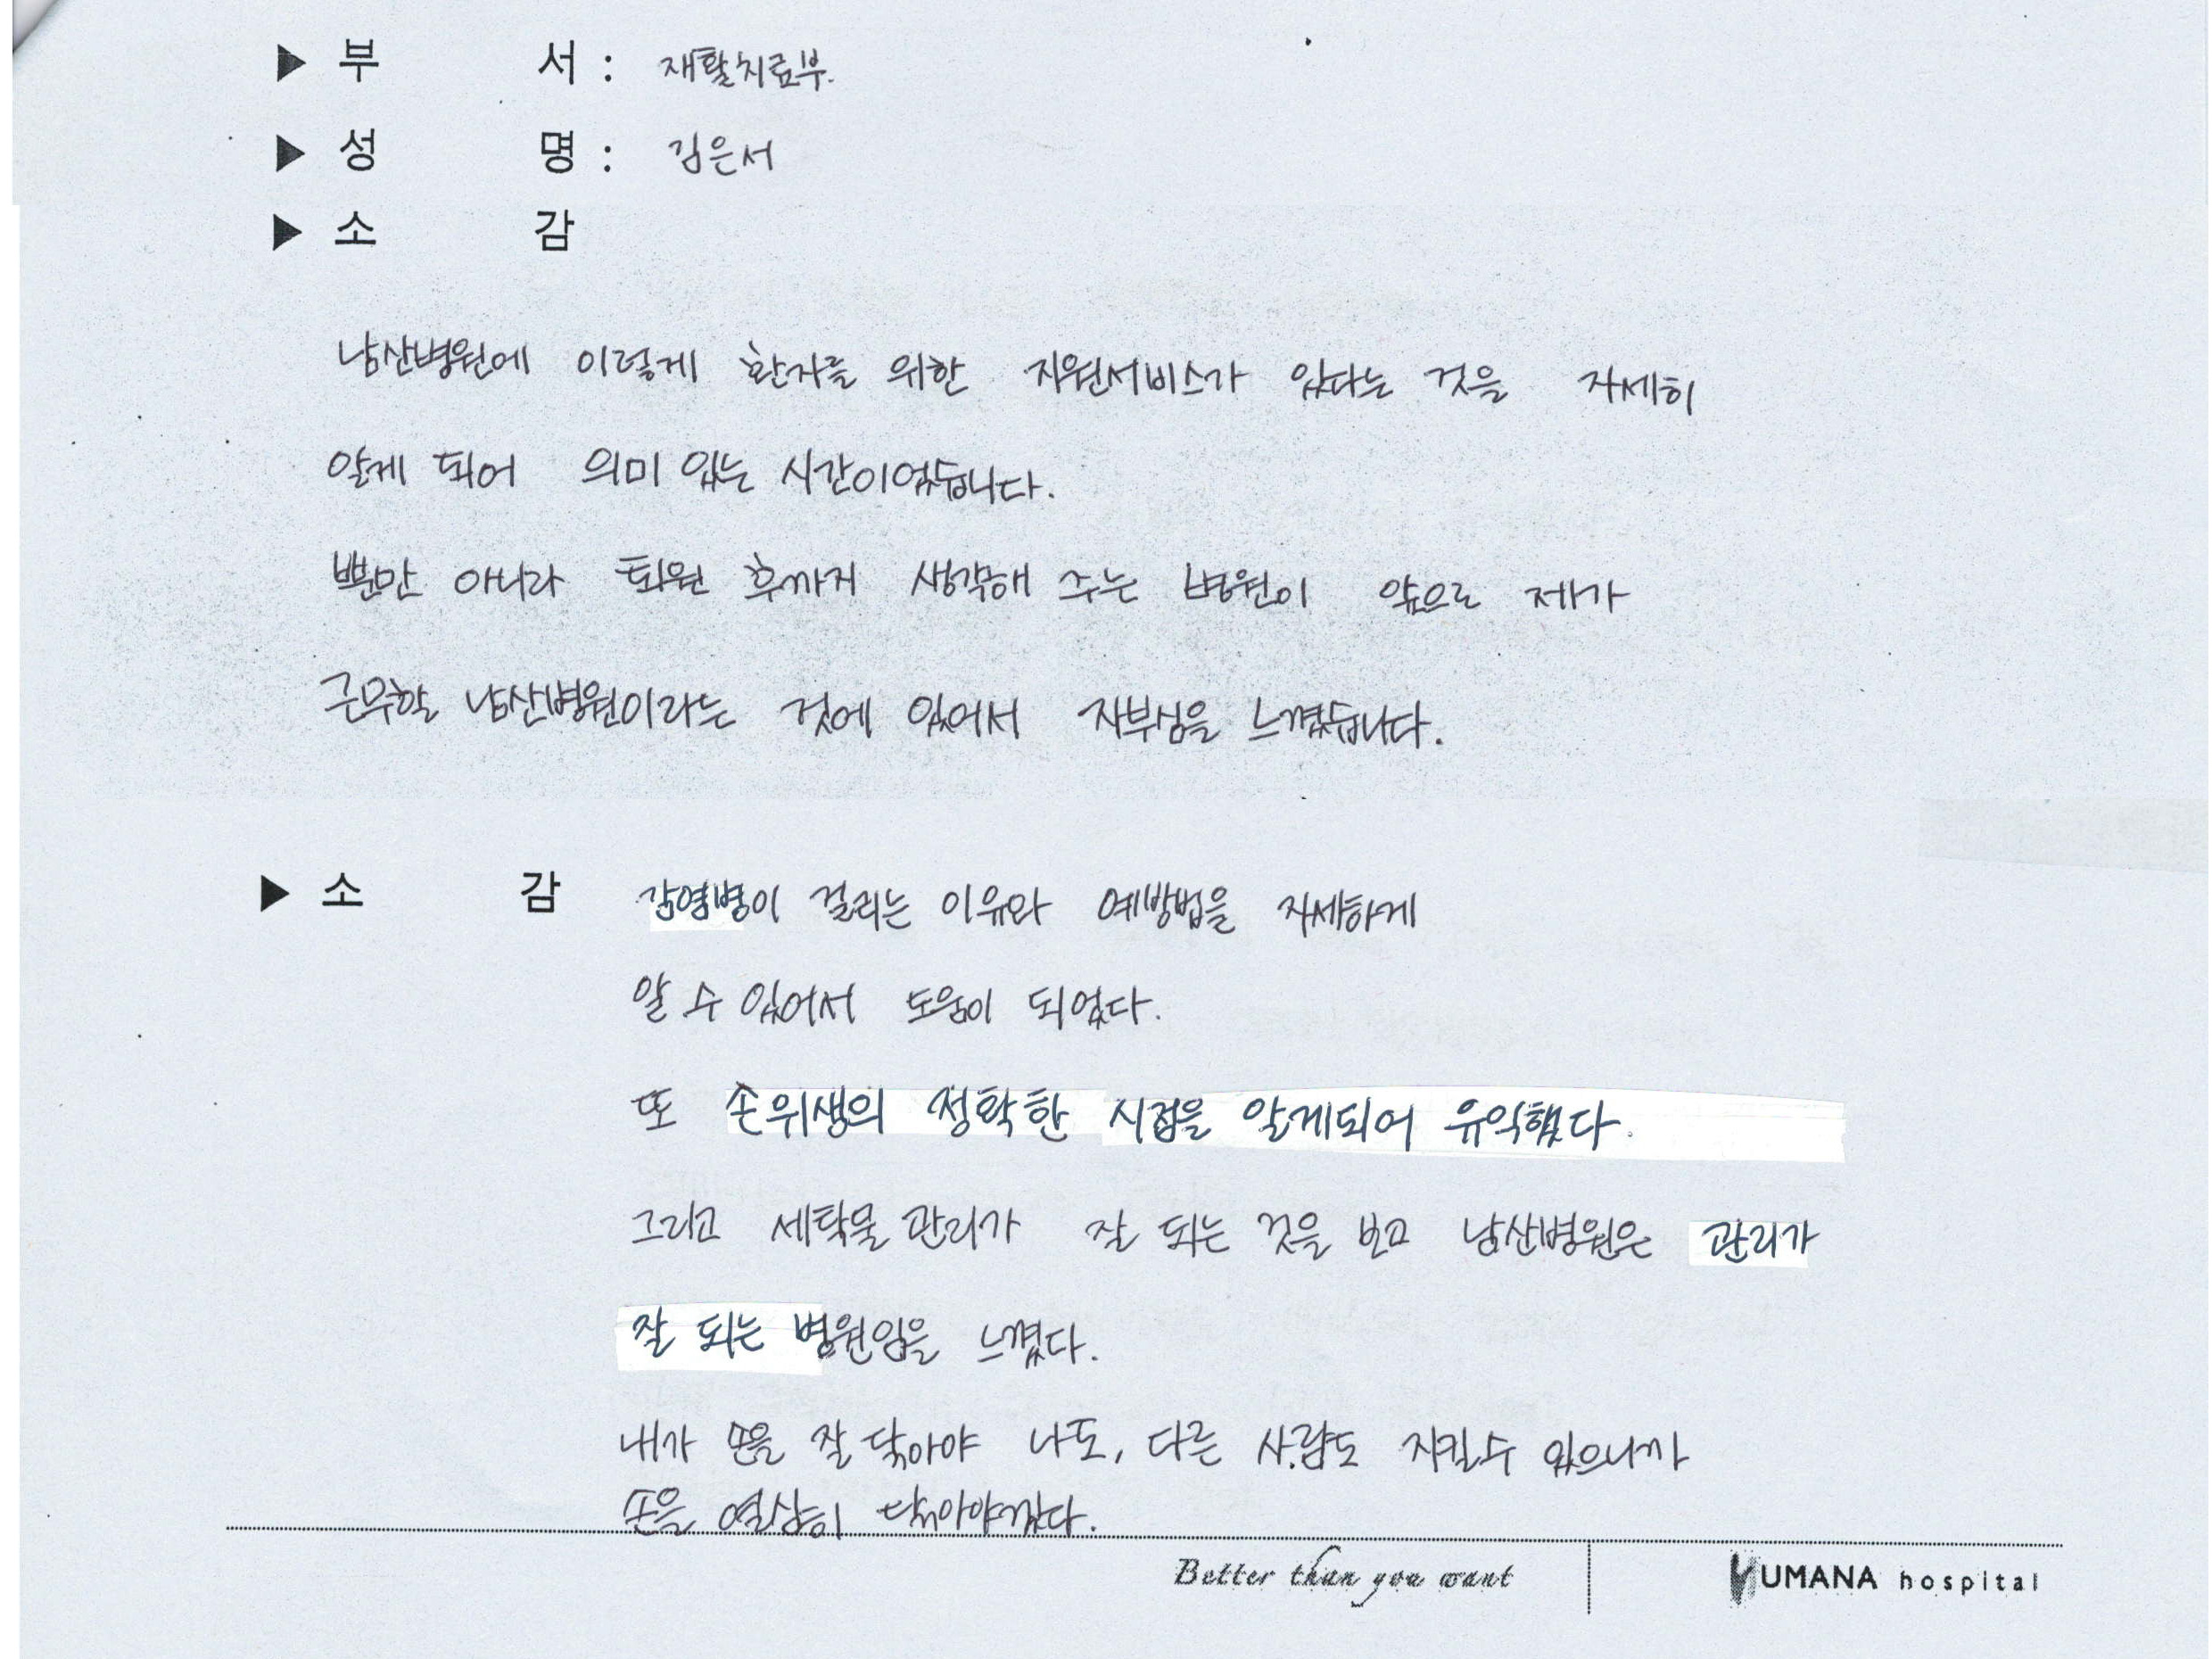 ▶ 부 서 : 재활치료부.
▶ 성 명 : 김은서
▶ 소 감
남산병원에 이렇게 환자를 위한 지원서비스가 있다는 것을 자세히
알게 되어 의미 있는 시간이었습니다.
뿐만 아니라 퇴원 후까지 생각해 주는 병원이 앞으로 제가
근무할 남산병원이라는 것에 있어서 자부심을 느꼈습니다.
▶ 소 감 감염병이 걸리는 이유와 예방법을 자세하게
알 수 있어서 도움이 되었다.
또 손위생의 정확한 시점을 알게되어 유익했다.
그리고 세탁물 관리가 잘 되는 것을 보고 남산병원은 관리가
잘 되는 병원임을 느꼈다.
내가 손을 잘 닦아야 나도, 다른 사람도 지킬수 있으니까
손을 열심히 닦아야겠다.
Better than you want
YUMANA hospital